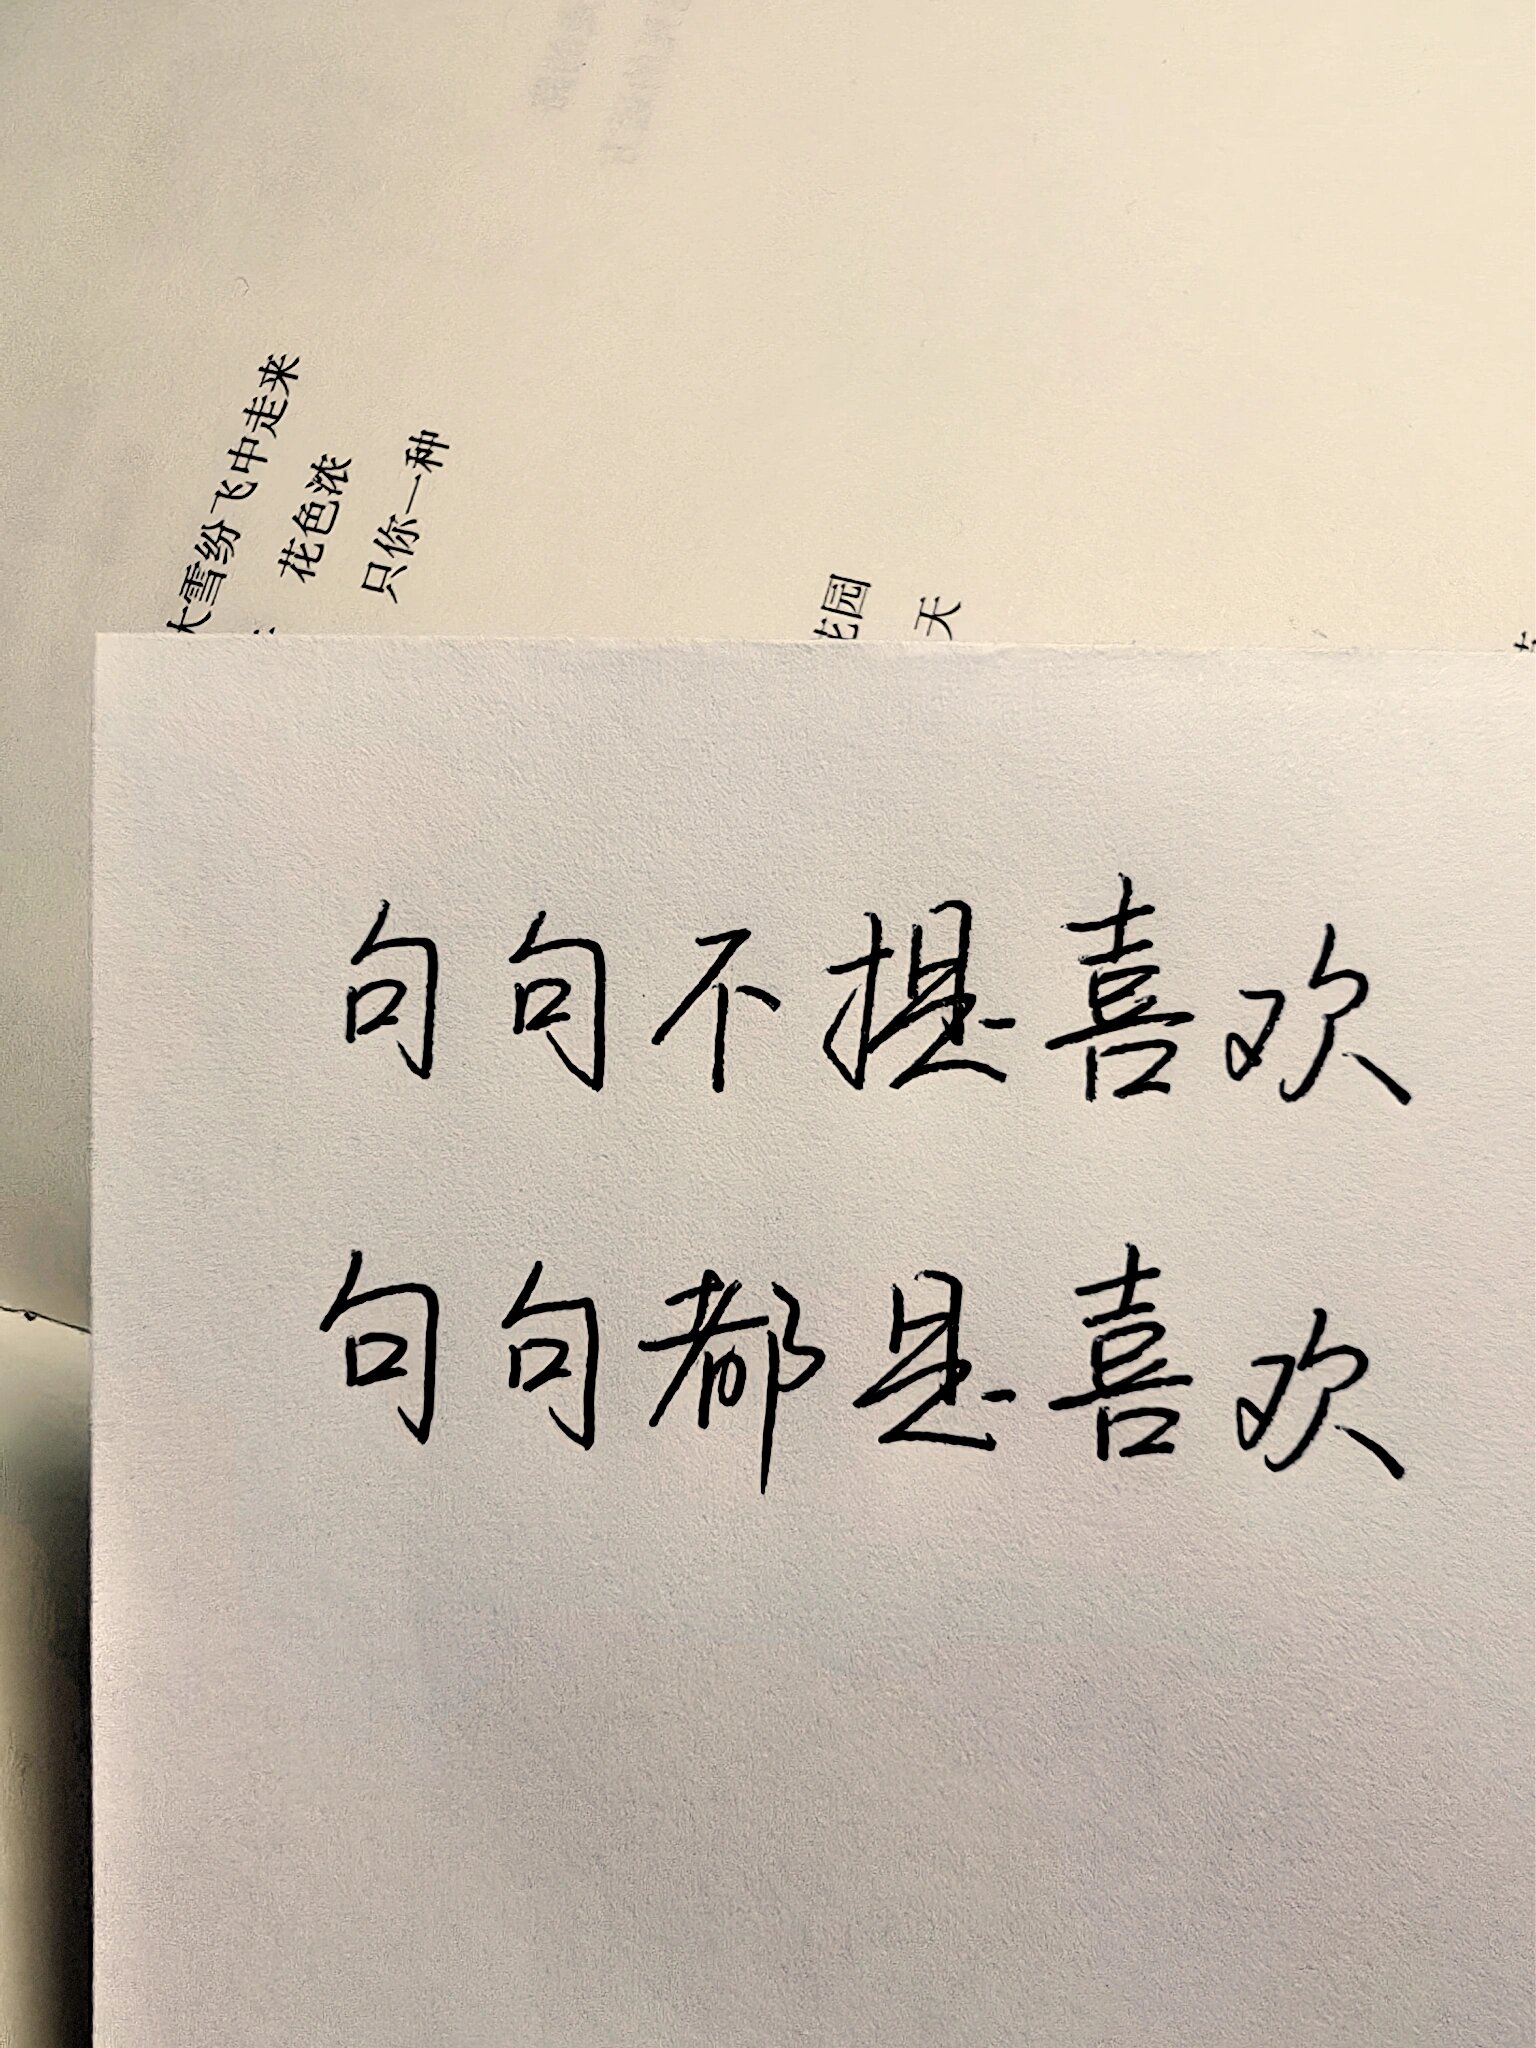 大雪纷飞中走来
花色浓
只你一种
花园
天
句句不提喜欢
句句都是喜欢